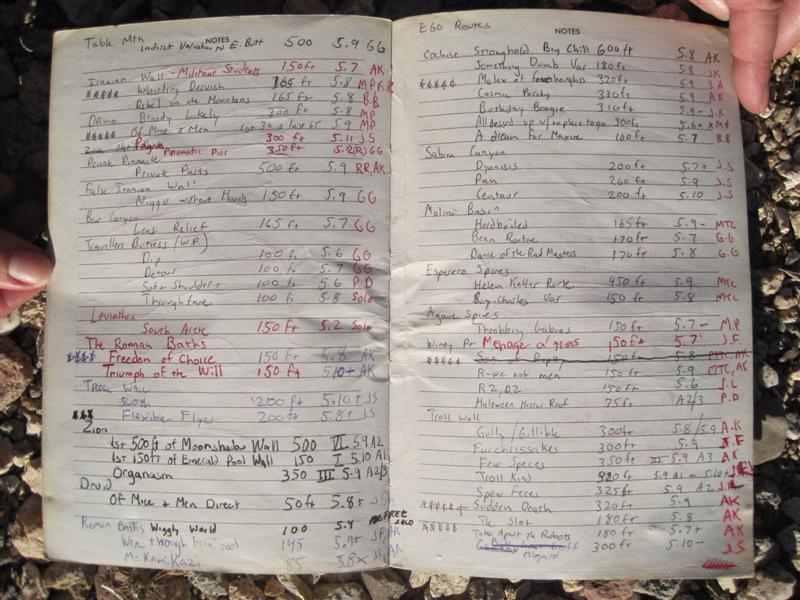 NOTES
Table Mtn
Indirect Variation E. Butt 500 5.9 GG
Iranian Wall - Militant Students 150 ft 5.7 AK
Whirling Dervish 165 ft 5.8 MP
Rebel in the Mountains 165 ft 5.8 B.B
Druid Bloody Likely 300 ft 5.8 MP
Of Mice & Men 1st 30 & last 65 5.9 MP
300 ft 5.11 J.S
350 ft 5.2(R) GG
Private Pinnacle
Private Parts 500 ft 5.9 RR, AK
False Iranian Wall
without Hoods 150 ft 5.9 GG
Bear Canyon
Leaf Relief 165 ft 5.7 GG
Travellers Buttress (W.P.)
Dip 100 ft 5.6 GG
Detour 100 ft 5.7 GG
Soft Shoulders 100 ft 5.6 P.D
Throughfare 100 ft 5.8 Solo
Leviathon
South Arete 150 ft 5.2 Solo
The Roman Baths
Freedom of Choice 150 ft 5.8 AK
Triumph of the Will 150 ft 5.10+ AK
Troll Wall
Sloth 200 ft 5.10+ JS
Flexible Flyer 200 ft 5.8+ JS
Zion
1st 500 ft of Moonshadow Wall 500 VI 5.9 A2
1st 150 ft of Emerald Pool Wall 150 I 5.10 A1
Organasm 350 III 5.9 A2/3
Druid
Of Mice & Men Direct 50 ft 5.8+ J.S
Roman Baths Wiggly World 100 5.4 FREE SOLO
Were through being cool 145 5.9+ JF, AK
Mr. Kamikazi 85 5.8x AK
E60 Routes
NOTES
Cochise Stronghold Big Chill 600 ft 5.8 AK
Something Dumb Var 180 ft 5.8 JK
320 ft 5.8 S.A
Cosmic Peachy 330 ft 5.9 AK
Birthday Boogie 310 ft 5.9- J.K
All dressed up w/ no place to go 300 ft 5.6+ x M+
A dream for Maxine 100 ft 5.7 B.B
Sabino Canyon
Dyonisis 200 ft 5.7+ J.S
Pan 200 ft 5.9 J.S
Centaur 200 ft 5.10 J.S
Molino Basin
Hardboiled 165 ft 5.9- MTC
Bean Routine 170 ft 5.7 G.G
Dance of the Rad Masters 170 ft 5.8 G.G
Esperero Spires
Helen Keller Route 450 ft 5.9 MTC
Ray Charles Var 150 ft 5.8 MTC
Agave Spires
Throbbing 150 ft 5.7- M.P
Windy Pt Menage a' trois 150 ft 5.7 J.F.
150 ft 5.8 MTC, AK
R-we not men 150 ft 5.9 MTC, AK
R2, D2 150 ft 5.6 J.L
Haloween Horror Roof 75 ft A2/3 P.D
Troll Wall
Gully/Gullible 300 ft 5.8/5.9 A.K
Furchrissakes 300 ft 5.9 J.F
Few Speces 350 ft III 5.9 A3 AK
Troll King 5.9 A1
Spew Feces 325 ft 5.9 A2
Sudden Death 320 ft 5.9 AK
The Slot 180 ft 5.8 AK
Take Apart the Robots 180 ft 5.7+ AK
300 ft 5.10- J.S